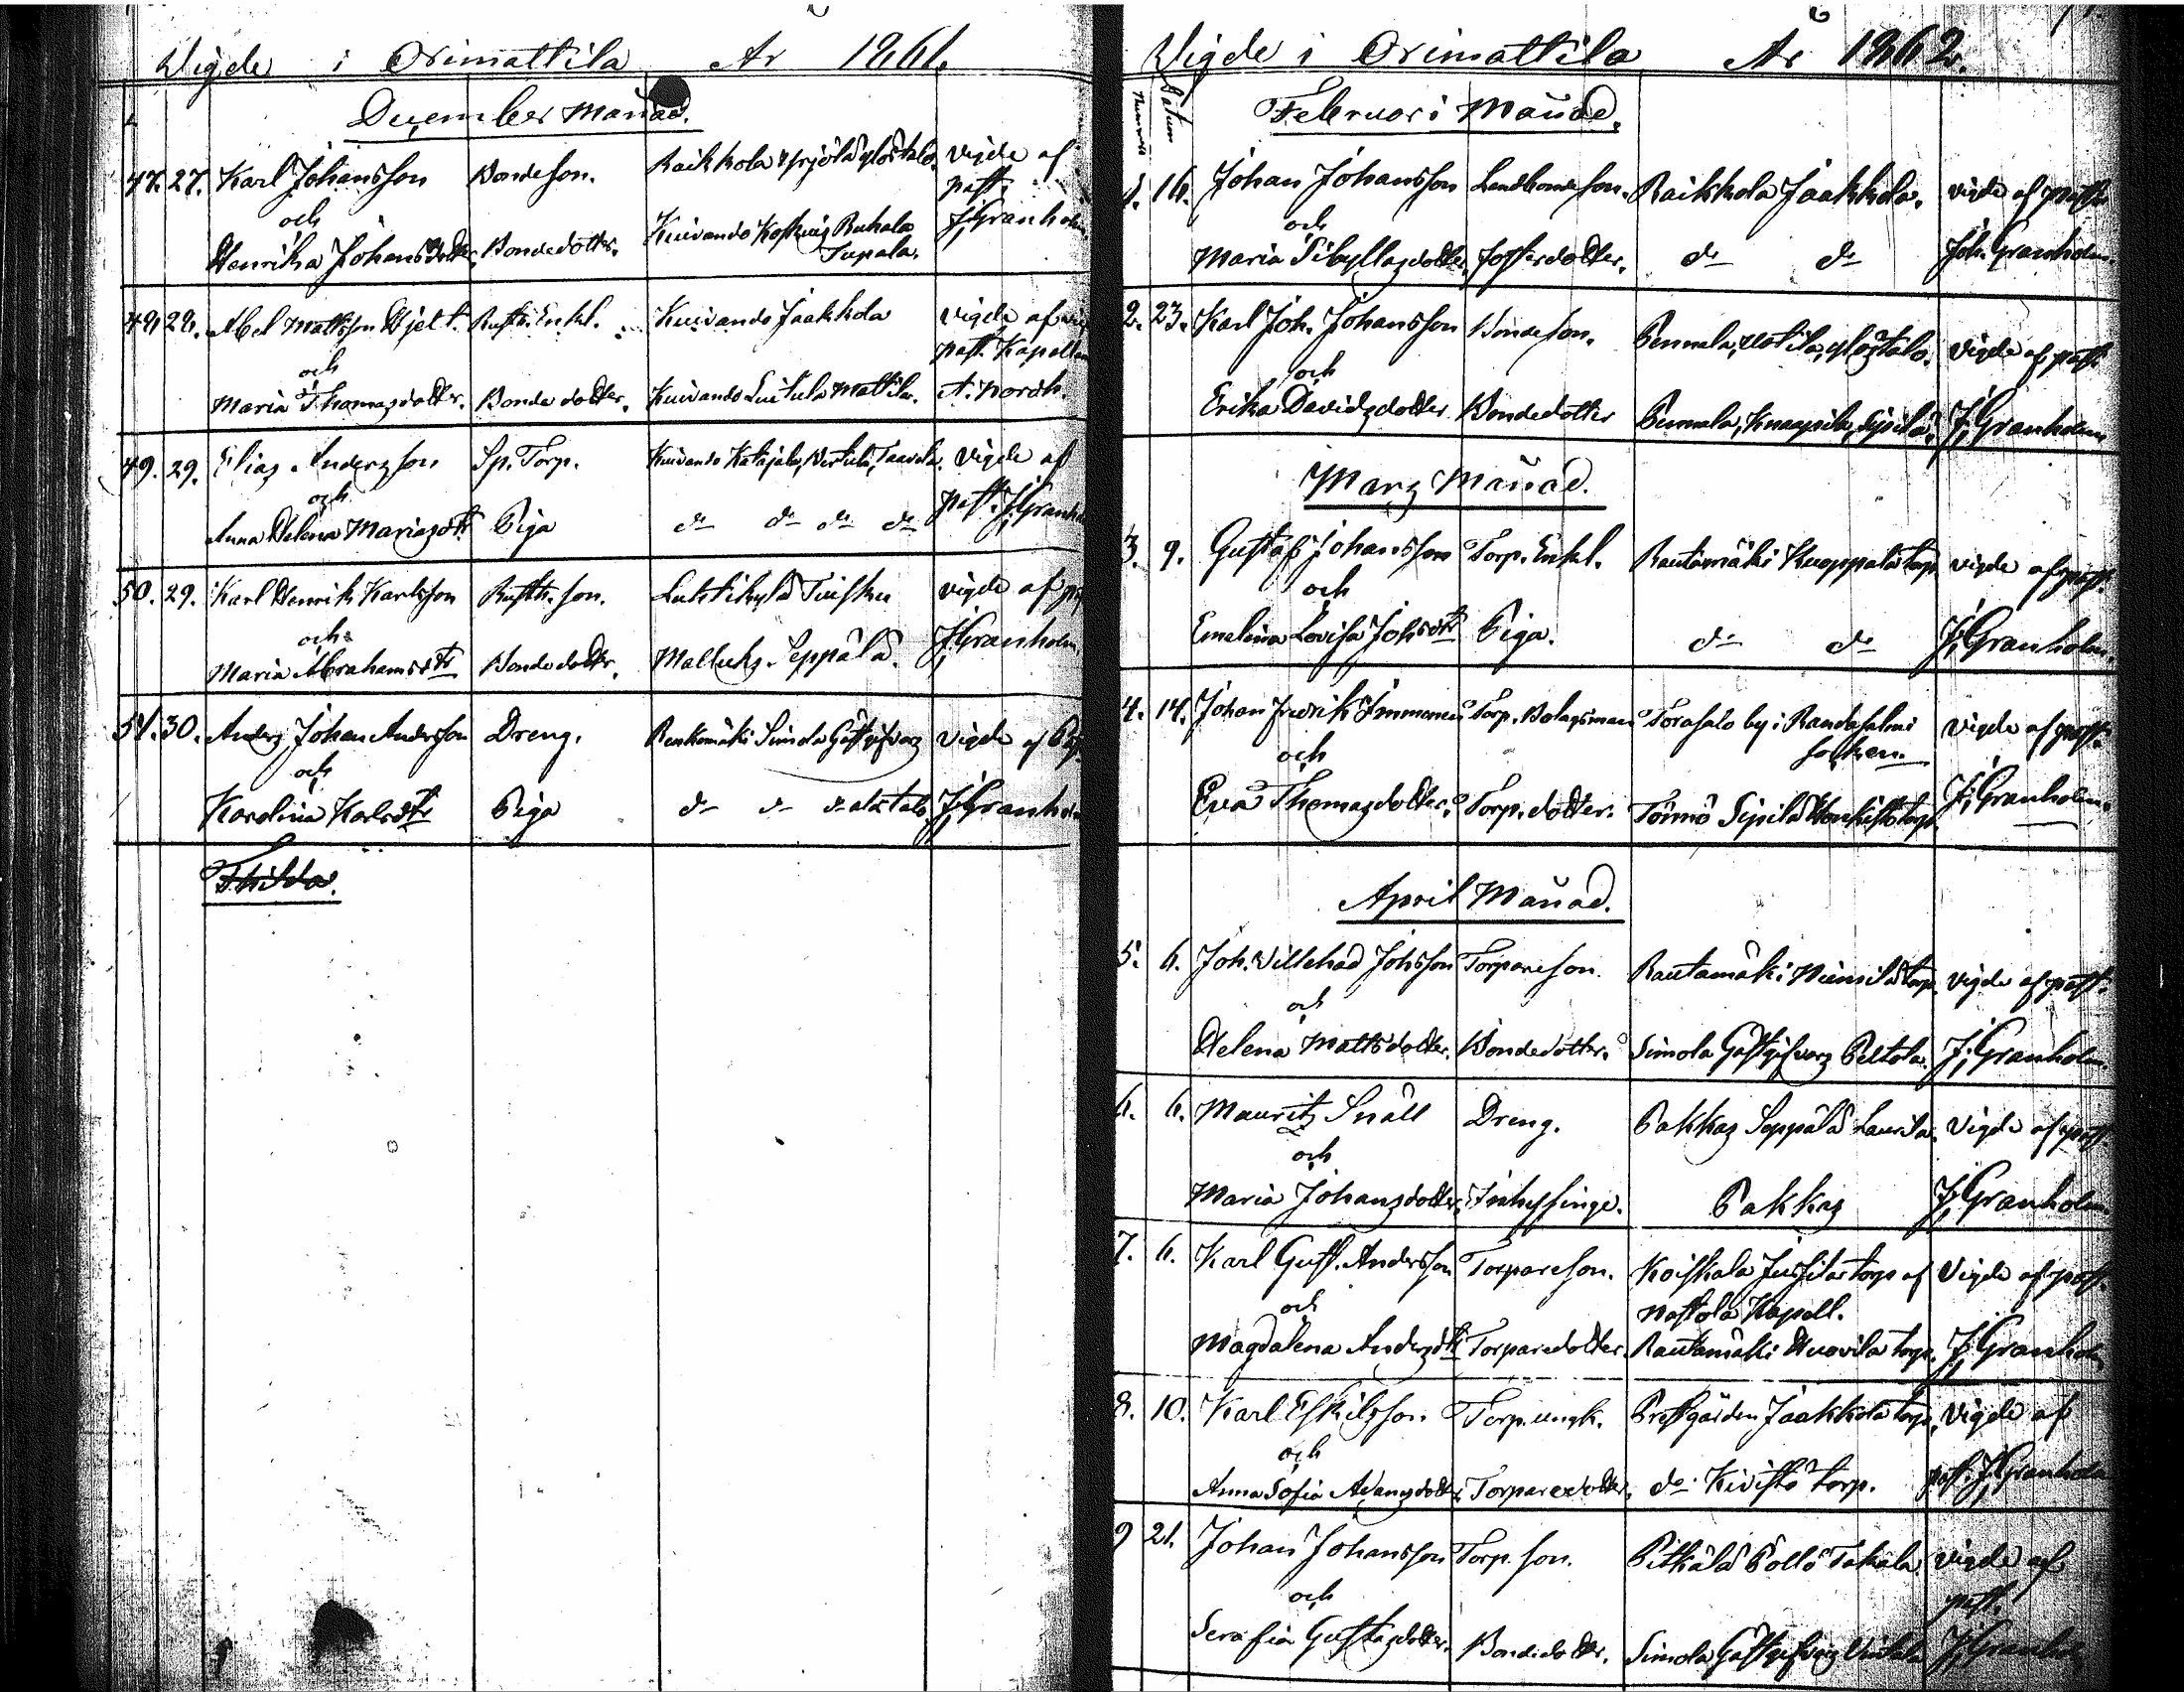 Vigde i Orimattila År 1861.
December Månad.
47. 27. Karl Johansson Bondeson. Raikkola Yrjölä Vigde af
past.
och
Henrika Johansdotter. Bondedotter. Kuivando Koskuis Ruhala J. Granholm
Tupala.
28. Abel Mattsson Hjelt. Rusth. Enkl. Kuivando Jaakkola Vigde af
past. Kapellan
och
Maria Thomasdotter. Bondedotter. Kuivando Mattila. A. Nordh.
49. 29. Elias Andersson Sp. Torp. Kuivando Katajala, Taavela. Vigde af
och
Anna Helena Mariasdtr Piga do do do do past. J. Granho
50. 29. Karl Henrik Karlsson Rusth. son. Luhtikylä Tuisku vigde af
och
Maria Abrahamsdtr Bondedotter. Mallusj. Seppälä. J. Granholm
51. 30. Anders Johan Andersson Dreng. Simola Gästgifvars vigde af
och
Karolina Karlsdtr Piga do do J. Granho
Thilda.
Vigde i Orimattila År 1862.
Datum
Februari Månad.
1. 16. Johan Johansson Landbondeson. Raikkola Jaakkola. vigde af past.
och
Maria Sibyllasdotter. fosterdotter. do do Joh. Granholm
2. 23. Karl Joh. Johansson Bondeson. Pennala, Ylöstalo. Vigde af past.
och
Erika Davidsdotter Bondedotter Pennala, Knaapila, Sipilä. J. Granholm
Mars Månad.
3. 9. Gustaf Johansson Torp. Enkl. Rautamäki Kuoppala torp vigde af past.
och
Emelina Lovisa Johsdtr Piga. do do J. Granholm.
4. 14. Johan Fredrik Immonen Torp. Bolagsman Torasalo by i Randasalmi Vigde af past.
socken.
och
Eva Thomasdotter. Torp. dotter. Tönnö Sipilä torp. J. Granholm.
April Månad.
5. 6. Joh. Villehad Johsson Torpareson. Rautamäki torp. Vigde af past.
och
Helena Mattsdotter. Bondedotter. Simola Gästgifvars Peltola. J. Granholm.
6. 6. Mauritz Snäll Dreng. Pakkas Seppälä Laurila. Vigde af past.
och
Maria Johansdotter. Inhysinge. Pakkas J. Granholm.
7. 6. Karl Gust. Andersson Torpareson. Koiskala Jussila torp af Vigde af past.
Nastola Kapell.
och
Magdalena Andersdtr Torparedotter. Rautamäki Huovila torp. J. Granholm
8. 10. Karl Eskilsson Torp. ungk. Prestgården Jaakkola torp. Vigde af
och
Anna Sofia Adamsdotter. Torparedotter. do Kivistö torp. past. J. Granholm
9 21. Johan Johansson Torp. son. Pitkälä Pöllö Takala Vigde af
och
past.
Serafia Gustafsdotter. Bondedotter. Simola Gästgifvars J. Granholm